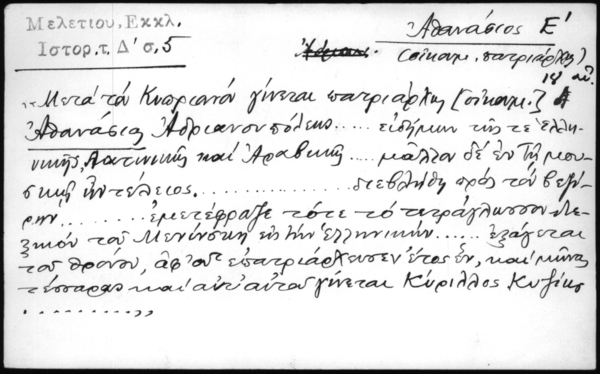 Μελετίου, Εκκλ.
Ιστορ. τ. Δ' σ. 5
Ἀθανάσιος Ε'
(οἰκουμ. πατριάρχης)
18 αἰ.
"Μετὰ τὸν Κυπριανὸν γίνεται πατριάρχης [οἰκουμ.] ὁ
Ἀθανάσιος Ἀδριανουπόλεως ..... εἰδήμων τῆς τε ἑλλη-
νικῆς, Λατινικῆς καὶ Ἀραβικῆς .... μᾶλλον δὲ ἐν τῇ μου-
σικῇ ἦν τέλειος. ............. διεβλήθη πρὸς τὸν βεζί-
ρην ......... ἐμετέφραζε τότε τὸ τετράγλωσσον λε-
ξικὸν τοῦ Μενίνσκη εἰς τὴν ἑλληνικήν ...... ἐξάγεται
τοῦ θρόνου, ἀφ' οὗ ἐπατριάρχευσεν ἔτος ἕν, καὶ μῆνας
τέσσαρας καὶ ἀντ' αὐτοῦ γίνεται Κύριλλος Κυζίκου
.........."